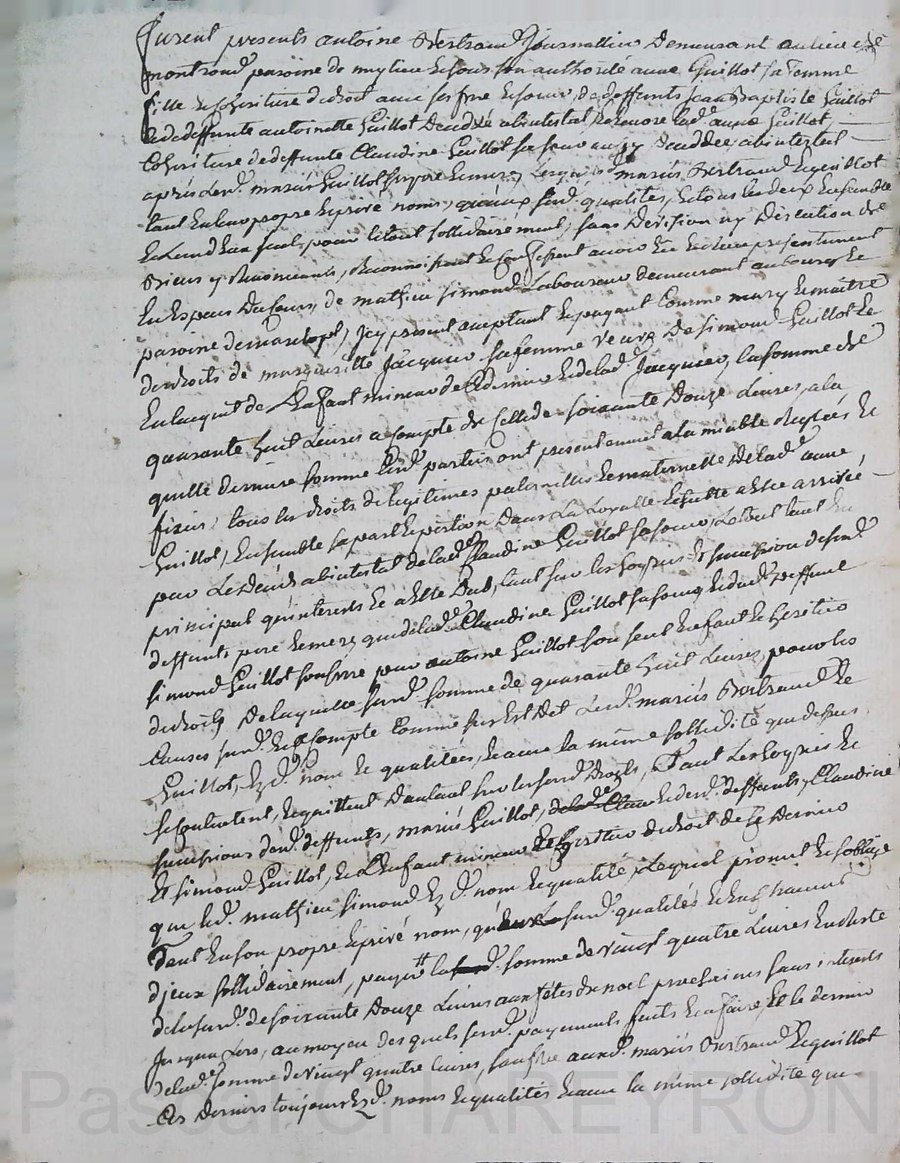 furent presents antoine Bertrand Journallier Demeurant au lieu de
montrond paroisse de mylieu et sous son authorité anne Guillot sa femme
fille et heritiere de droit avec ses frere et soeur, de deffunts Jean Baptiste Guillot
et de deffunte antoinette Guillot Decedés abintestat et encore lad. anne Guillot
Coheritiere de deffunte Claudine Guillot sa soeur aussy Decedée abintestat
après lesd. mariés Guillot ses pere et mere, Lesquels d. mariés Bertrand et Guillot
tant en leur propre et privé noms, qu'aux susd. qualités, et tous les deux ensemble
et L'un d'eux seul pour le tout sollidairement, sans Division ny Discution de
biens y Renonceants, Reconnoissent et confessent avoir Eu et Receu presentement
En Especes du cours, de mathieu simond Laboureur demeurant au bourg et
paroisse de marclopt, Icy present acceptant et payant Comme mary et maitre
des droits de marguerite Jacquier sa femme veuve De simond Guillot et
En lacquit de L'Enfant mineur de ce dernier et de lad. Jacquier, la somme de
quarante huit Livres a compte de celle de soixante Douze Livres, a la
quelle derniere somme Lesd. parties ont presentement a la miable Reglés et
fixés, tous les droits de legitimes paternelle et maternelle de lad. anne
Guillot, Ensemble sa part et portion Dans La Loyalle Echutte a Elle arrivée
pour Le Decés abintestat de lad. Claudine Guillot sa soeur, Le tout tant en
principal qu'interets et a Elle Dub, tant sur les hoyries et succession desd.
deffunts pere et mere, que de lad. Claudine Guillot sa soeur, et dud. deffunt
simond Guillot son frere pour antoine Guillot son seul Enfant et heritier
de droits, De laquelle susd. somme de quarante huit Livres, pour les
Causes susd. et a compte Comme sus Est Det Lesd. mariés Bertrand et
Guillot, Ezd. nom et qualitées, et avec la même sollidité que dessus,
se Contentent, et quittent D'autant sur les susd. Droits, Tant Les hoyries et
successions desd. deffunts, mariés Guillot, et desd. deffunts, Claudine
Et simond Guillot, et L'enfant mineur et heritier de droit de ce Dernier
que led. mathieu simond Ezd. nom et qualité, Lequel promet et s'oblige
Tant En son propre et privé nom, qu'aux susd. qualités et En chacune
d'jcelles sollidairement, payer la somme de vingt quatre Livres En reste
de la susd. de soixante Douze Livres aux fêtes de noel prochaines sans interets
Jusqu'a Lors, au moyen des quels susd. payements faits et a faire, Et le dernier
de lad. somme de vingt quatre livres, sauf se auxd. mariés Bertrand et Guillot
Ces Derniers toujours Ezd. noms et qualités et avec la même sollidité que
Pascal CHAREYRON